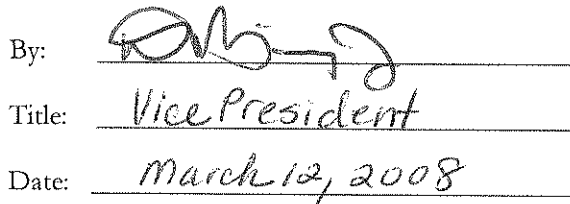 By:
Title: Vice President
Date: March 12, 2008